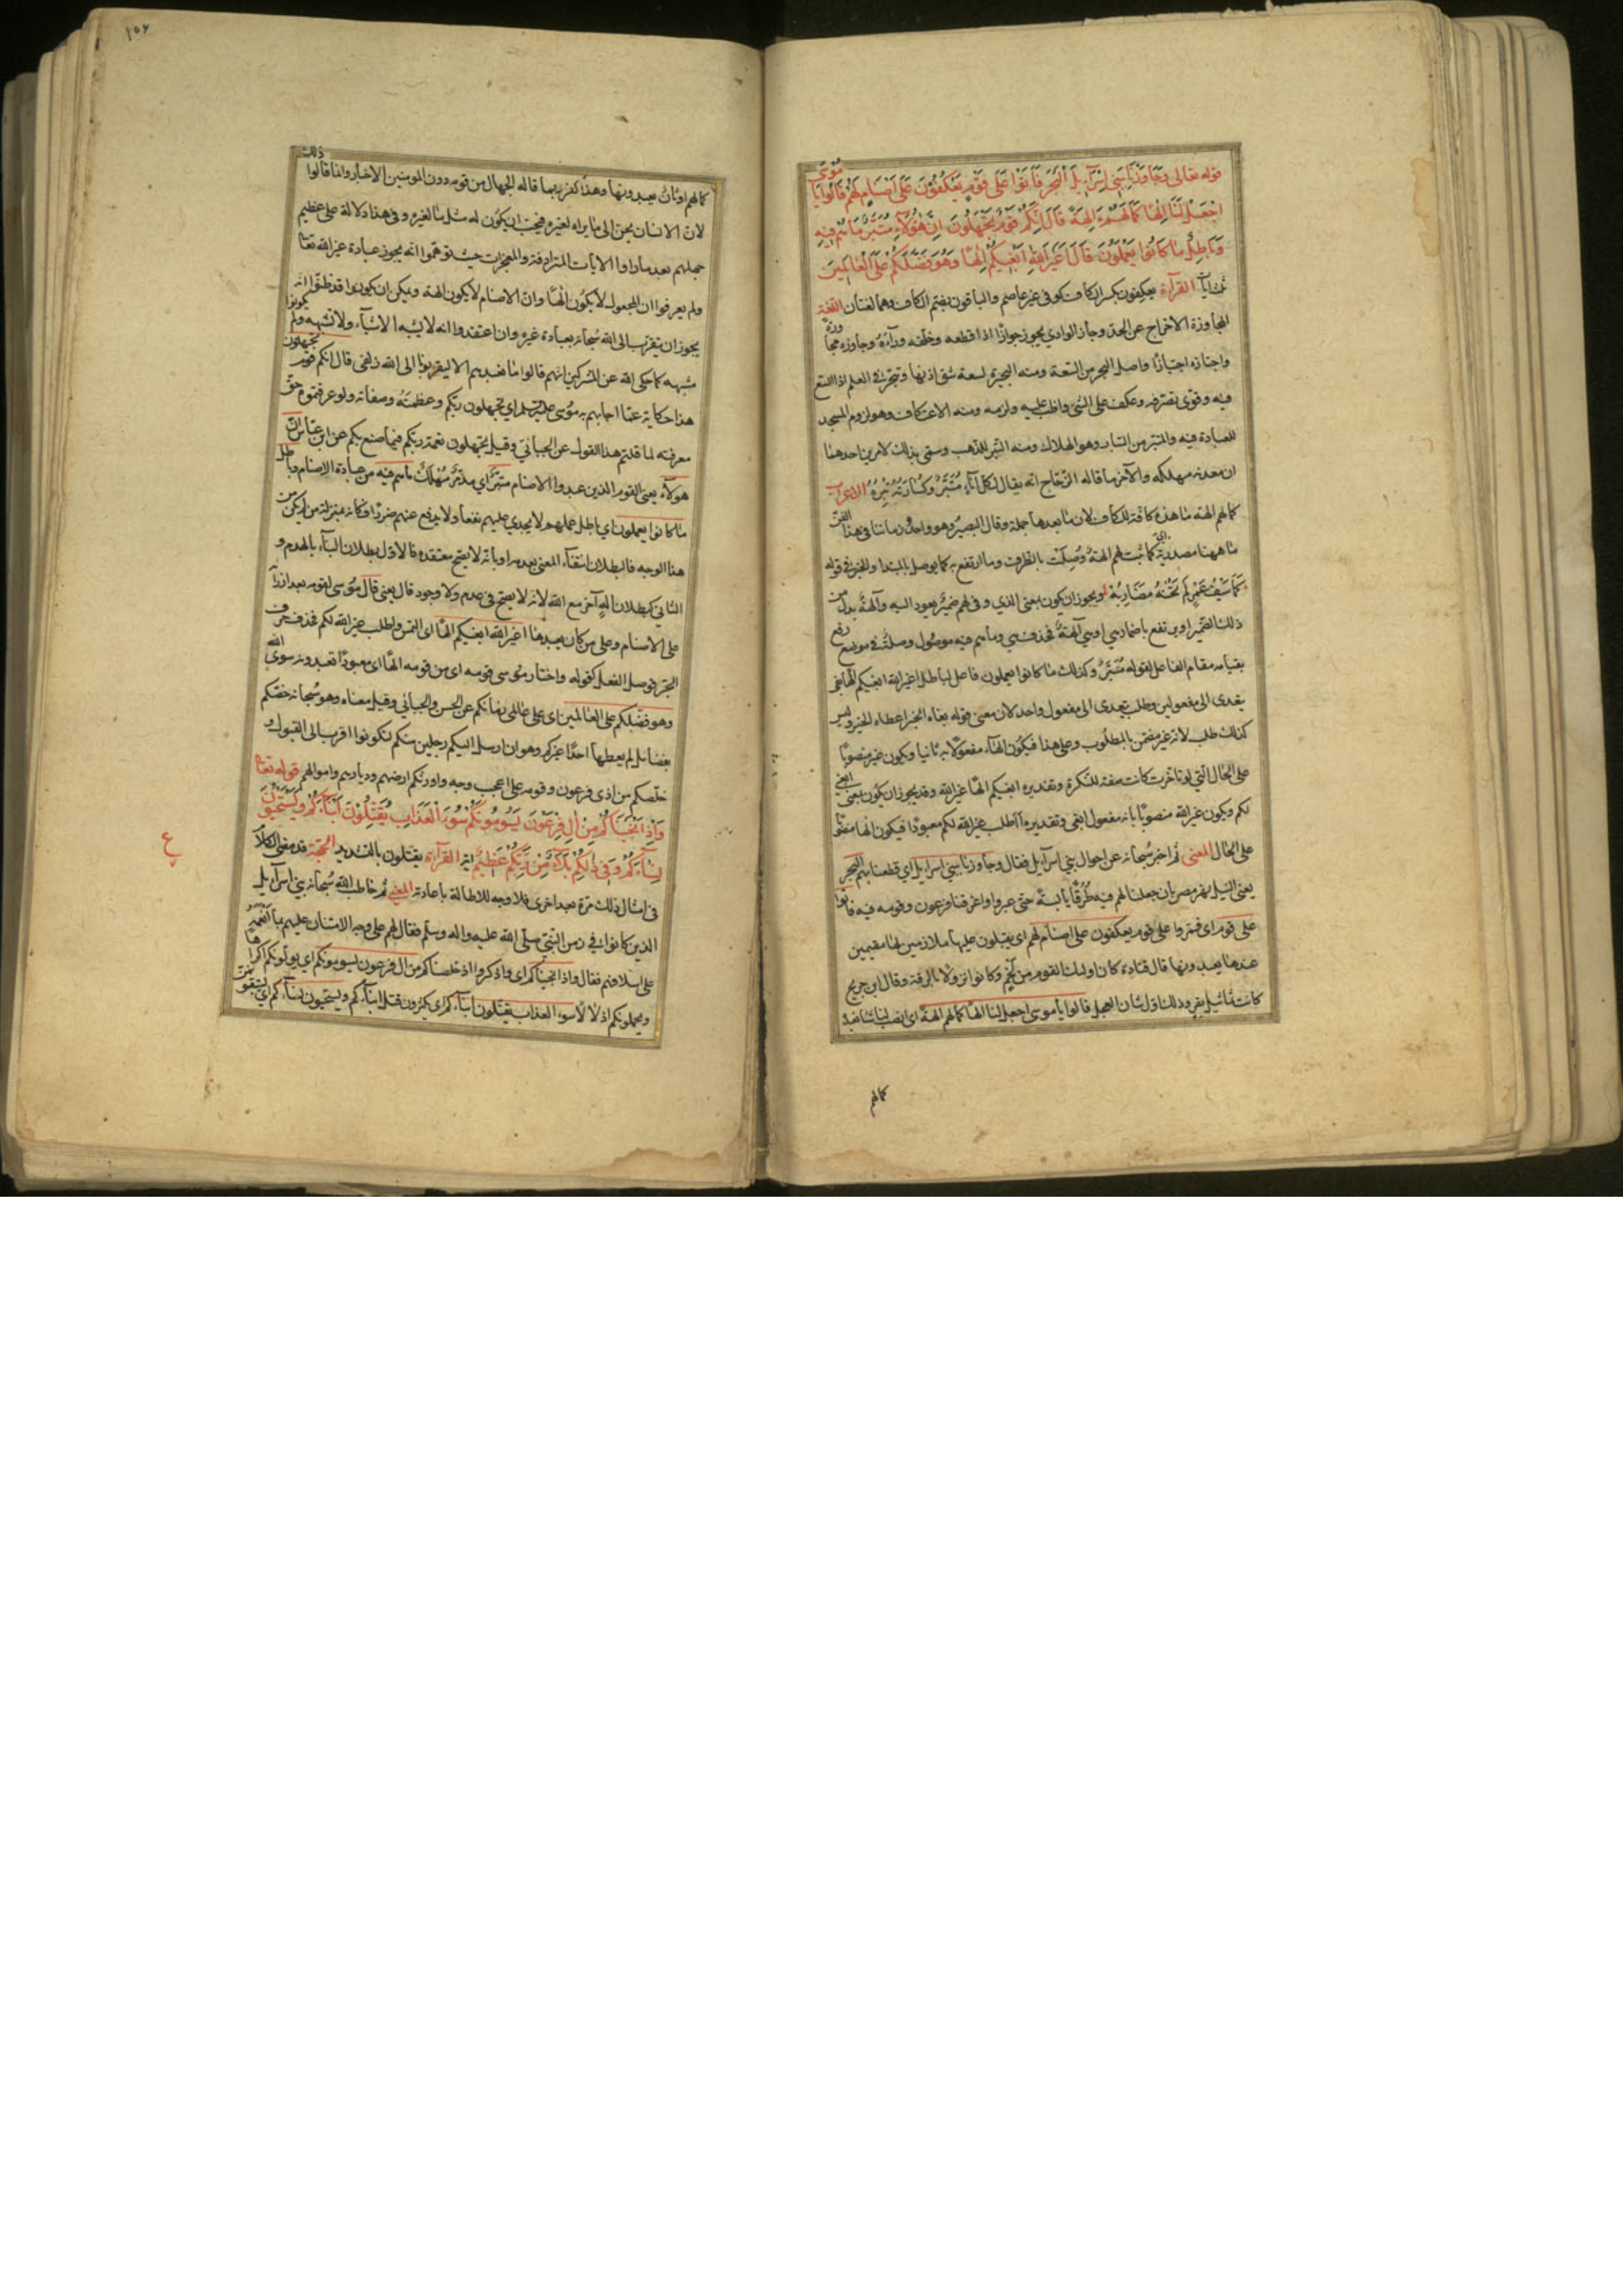 قوله تعالى وَجَاوَزْنَا بِبَنِي إِسْرَآئِيلَ الْبَحْرَ فَأَتَوْا عَلَى قَوْمٍ يَعْكُفُونَ عَلَى أَصْنَامٍ لَهُمْ قَالُوا يَا مُوسَى
اجْعَلْ لَنَا إِلَهًا كَمَا لَهُمْ آلِهَةٌ قَالَ إِنَّكُمْ قَوْمٌ تَجْهَلُونَ إِنَّ هَؤُلَاءِ مُتَبَّرٌ مَا هُمْ فِيهِ
وَبَاطِلٌ مَا كَانُوا يَعْمَلُونَ قَالَ أَغَيْرَ اللَّهِ أَبْغِيكُمْ إِلَهًا وَهُوَ فَضَّلَكُمْ عَلَى الْعَالَمِينَ
ثلث آيات القرآءة يعكفون بكسر الكاف كوفى غير عاصم والباقون بضم الكاف وهما لغتان اللغة
المجاوزة الاخراج عن الحد وجاز الوادي يجوز جوازا اذا قطعه وخلفه ورآءه وجاوزه مجاوزة
واجتازه اجتيازا واصل البحر من السعة ومنه البحيرة لسعة شق اذنها وتبحر فى العلم اذا اتسع
فيه وقوى تصرفه وعكف على الشئ واظب عليه ولزمه ومنه الاعتكاف وهو لزوم المسجد
للعبادة فيه والمتبر من التبار وهو الهلاك ومنه التبر للذهب وسمى بذلك لامرين احدهما
ان معدنه مهلكة والآخر ما قاله الزجاج انه يقال لكل اناء مُتَبَّر وكسارته تبره الاعراب
كما لهم الهة ما هذه كافة للكاف لان ما بعدها جملة وقال البصير وهو واحد زماننا فى هذا الفن
ما ههنا مصدرية اى كما ثبت لهم الهة ووصلت بالظرف وما ارتفع به كما يوصل بالمبتدا والخبر فى قوله
كَمَا سَيْفُ عَمْرٍو لَمْ تَخُنْهُ مَضَارِبُهْ ويجوز ان يكون بمعنى الذي وفى لهم ضمير يعود اليه وآلهة بدل من
ذلك الضمير او يرتفع باضمار هي اى هي آلهة فحذف هي وما هم فيه موصول وصلة فى موضع رفع
بقيامه مقام الفاعل لقوله مُتَبَّر وكذلك ما كانوا يعملون فاعل لباطل اغير الله ابغيكم الها بغى
يتعدى الى مفعولين وطلب يتعدى الى مفعول واحد لان معنى قوله بغاه الخير اعطاه الخير وليس
كذلك طلب لانه غير مضمن بالمطلوب وعلى هذا فيكون الها مفعولا به ثانيا ويكون غير منصوبا
على الحال التي لو تاخرت كانت صفة للنكرة وتقديره ابغيكم الها غير الله وقد يجوز ان يكون بمعنى ابغي
لكم ويكون غير الله منصوبا بانه مفعول ابغى وتقديره أاطلب غير الله لكم معبودا فيكون الها منصوبا
على الحال المعنى ثم اخبر سبحانه عن احوال بني اسرآئيل فقال وجاوزنا ببني اسرآئيل اي قطعنا بهم البحر
يعنى النيل نهر مصر بان جعلنا لهم فيه طرقا يابسة حتى عبروا واغرقنا فرعون وقومه فيه فاتوا
على قوم اى فمروا على قوم يعكفون على اصنام لهم اى يقبلون عليها ملازمين لها مقيمين
عندها يعبدونها قال قتادة كان اولئك القوم من لخم وكانوا نزولا بالرقة وقال ابن جريج
كانت تماثيل بقر وذلك اول شان العجل قالوا يا موسى اجعل لنا الها كما لهم الهة اى انصب لنا شيئا نعبده
كما لهم
١٥٦
كما لهم اوثان يعبدونها وهذا كفر ربما قاله الجهال من قومه دون المومنين الاخيار وانما قالوا ذلك
لان الانسان يحن الى ما يراه لغيره فيحب ان يكون له مثل ما لغيره وفى هذا دلالة على عظيم
جهلهم بعد ما راوا الايات المترادفة والمعجزات حيث توهموا انه يجوز عبادة غير الله تعالى
ولم يعرفوا ان المجعول لا يكون الها وان الاصنام لا يكون الهة ويمكن ان يكونوا قد ظنوا انه
يجوز ان يتقرب الى الله سبحانه بعبادة غيره وان اعتقدوا انه لا يشبه الاشياء ولا تشبهه ولم يكونوا
مشبهة كما حكى الله عن المشركين انهم قالوا ما نعبدهم الا ليقربونا الى الله زلفى قال انكم قوم تجهلون
هذا حكاية عما اجابهم به موسى اي تجهلون ربكم وعظمته وصفاته ولو عرفتموه حق
معرفته لما قلتم هذا القول عن الجبائي وقيل تجهلون نعمة ربكم فيما صنع بكم عن ابن عباس ان
هولاء يعنى القوم الذين عبدوا الاصنام متبر اي مدمر مهلك ما هم فيه من عبادة الاصنام وباطل
ما كانوا يعملون اي باطل عملهم لا يجدي عليهم نفعا ولا يدفع عنهم ضررا فكانه بمنزلة من لم يكن من
هذا الوجه فالبطلان انتفاء المعنى بعدمه او بانه لا يصح معتقده فالاول بطلان البناء بالهدم و
الثاني كبطلان اله آخر مع الله لانه لا يصح فى عدم ولا وجود قال يعنى قال موسى لقومه بعد ازرائه
على الاصنام وعلى من كان يعبدها اغير الله ابغيكم الها اى التمس واطلب غير الله لكم فحذف حرف
الجر فوصل الفعل كقوله واختار موسى قومه اى من قومه الها اى معبودا تعبدونه سوى الله
وهو فضلكم على العالمين اى على عالمى زمانكم عن الحسن والجبائي وقيل معناه وهو سبحانه خصكم
بفضائل لم يعطها احدا غيركم وهو ان ارسل اليكم رجلين منكم لتكونوا اقرب الى القبول و
خلصكم من اذى فرعون وقومه على اعجب وجه واورثكم ارضهم وديارهم واموالهم قوله تعالى
وَإِذْ أَنْجَيْنَاكُمْ مِنْ آلِ فِرْعَوْنَ يَسُومُونَكُمْ سُوءَ الْعَذَابِ يُقَتِّلُونَ أَبْنَآءَكُمْ وَيَسْتَحْيُونَ
نِسَآءَكُمْ وَفِي ذَلِكُمْ بَلَآءٌ مِنْ رَبِّكُمْ عَظِيمٌ اية القرآءة يقتلون بالتشديد الحجة قد مضى الكلام
فى امثال ذلك مرة بعد اخرى فلا وجه للاطالة باعادته المعنى ثم خاطب الله سبحانه بني اسرآئيل
الذين كانوا فى زمن النبي صلى الله عليه واله وسلم فقال لهم على وجه الامتنان عليهم بما
على اسلافهم فقال واذ انجيناكم اى واذكروا اذ خلصناكم من آل فرعون يسومونكم اي يولونكم اكراها
ويحملونكم اذلالا سوء العذاب يقتلون ابناءكم اى يكثرون قتل ابناءكم ويستحيون نساءكم اى يستبقونهن
ع